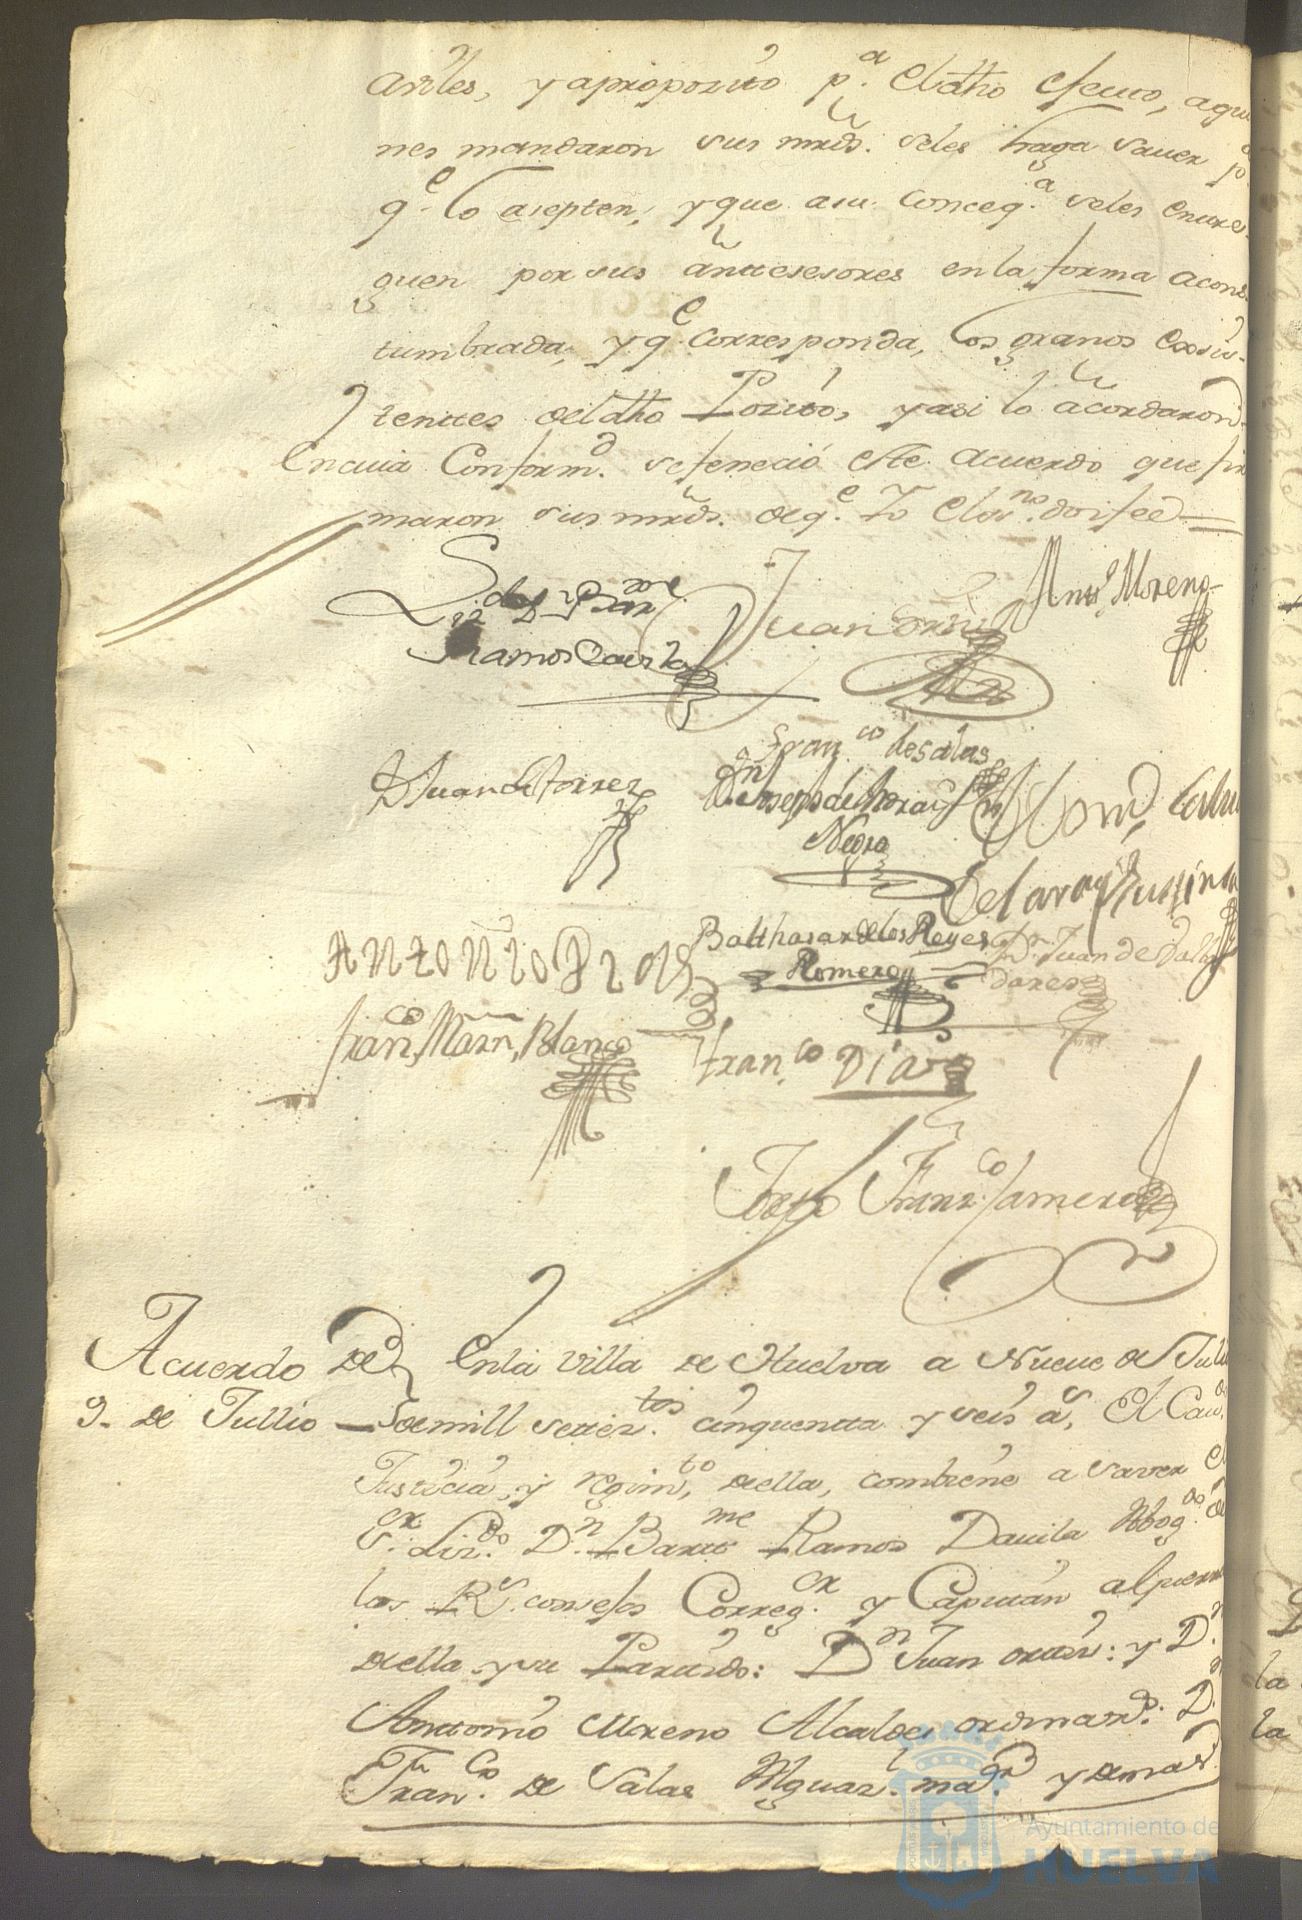 aviles, y aproposito p.ª el dho efecto, a quie
nes mandaron sus mrds. seles haga saver p.ª
q.e lo asepten, y que a su conceq.ª seles entre
guen por sus anttesesores en la forma acons
tumbrada, y q.e corresponda, los granos exsis
tenttes del dho Posito, y asi lo acordaron
En cuia Conform.d se feneció este Acuerdo que fir
maron sus mrds. de q.e Yo el ss.no doi fee
Liz.do D.n Barme
Ramos Davila
Juan Ortiz
Antt.o Moreno
D Juan de torres
Fran.co de salas
D.n Joseph de
Negro
ANtONIO DIAS
Balthasar de los Reyes
Romero
D.n Juan de
Fran.co Marn, Blanco
Fran.co Diaz
Joseph Franz.co Camero
Acuerdo de
9. de Jullio
En la villa de Huelva a Nueve de Jul
de mill setez.tos cinquentta y seis a.s, El Cav.do
Justicia, y regim.to, della, combiene a saver el
S.or Liz.do D.n Bartt.me Ramos Davila Abog.do de
los R.s consejos Correg.or y Capitan a guerra
della y su Partido: D.n Juan ortiz: y D.n
Anttonio Moreno Alcaldes ordinar.s: D.n
Fran.co de Salas Alguaz.l ma.or y demas
Ayuntamiento de
HUELVA